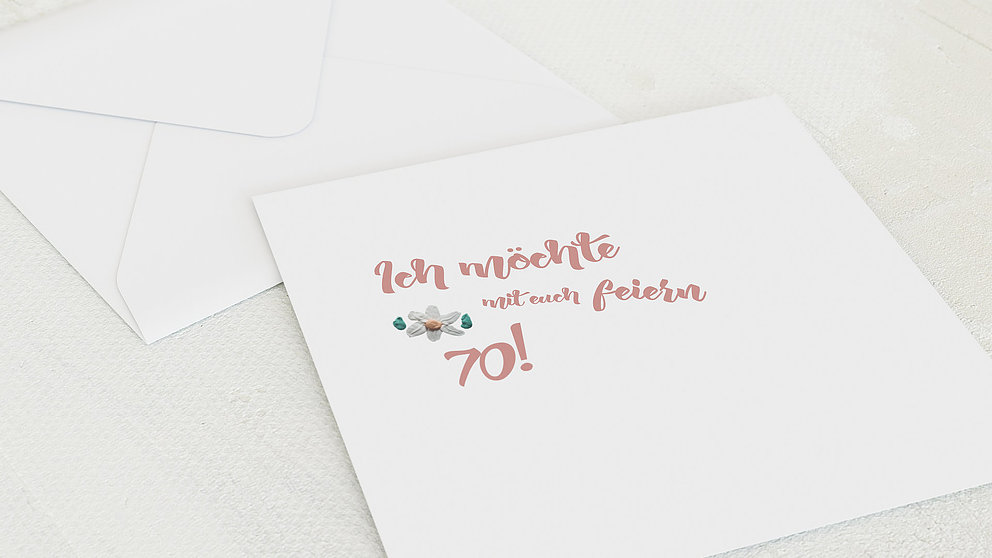 Ich möchte
mit euch feiern
70!